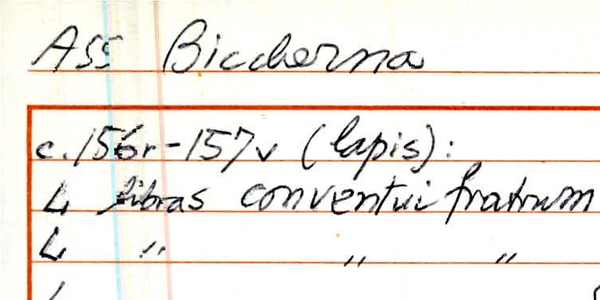 ASS Biccherna
c. 156r-157v (lapis):
L libras conventui fratrum
L " " "
L